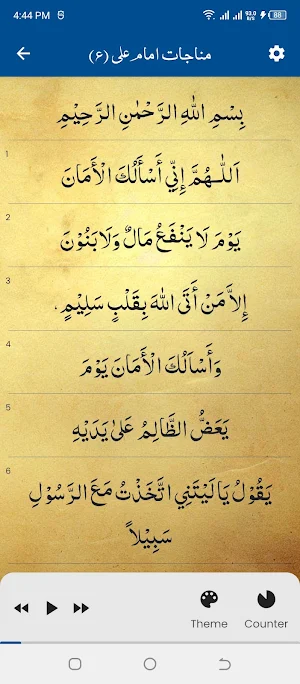 4:44 PM 93.0 B/s 88
مناجات امام علی (۶)
بِسْمِ اللهِ الرَّحْمٰنِ الرَّحِيْمِ
1
اَللّٰـهُمَّ اِنِّي أَسْأَلُكَ الْأَمَانَ
2
يَوْمَ لَا يَنْفَعُ مَالٌ وَلَا بَنُوْنَ
3
إِلاَّ مَنْ أَتَى اللهَ بِقَلْبٍ سَلِيْمٍ.
4
وَأَسْاَلُكَ الْأَمَانَ يَوْمَ
5
يَعَضُّ الظَّالِمُ عَلىٰ يَدَيْهِ
6
يَقُوْلُ يَا لَيْتَنِي اتَّخَذْتُ مَعَ الرَّسُوْلِ
سَبِيْلاً
Theme Counter